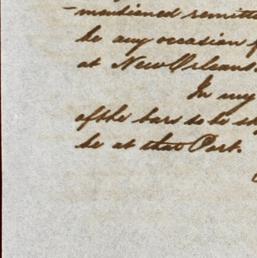 -mentioned remitt
be any occasion f
at New Orleans.
In my
of the bars to be sh
be at that Port.